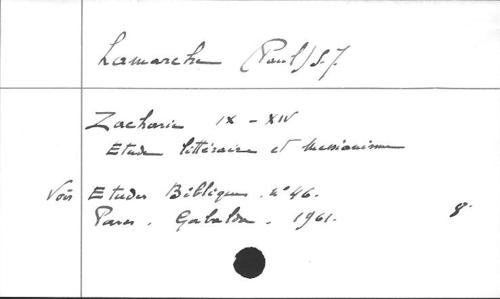 Lamarche (Paul) S.J.
Zacharie IX - XIV
Etude littéraire et Messianisme
Voir Etudes Bibliques. n° 46.
Paris. Gabalda. 1961. 8.